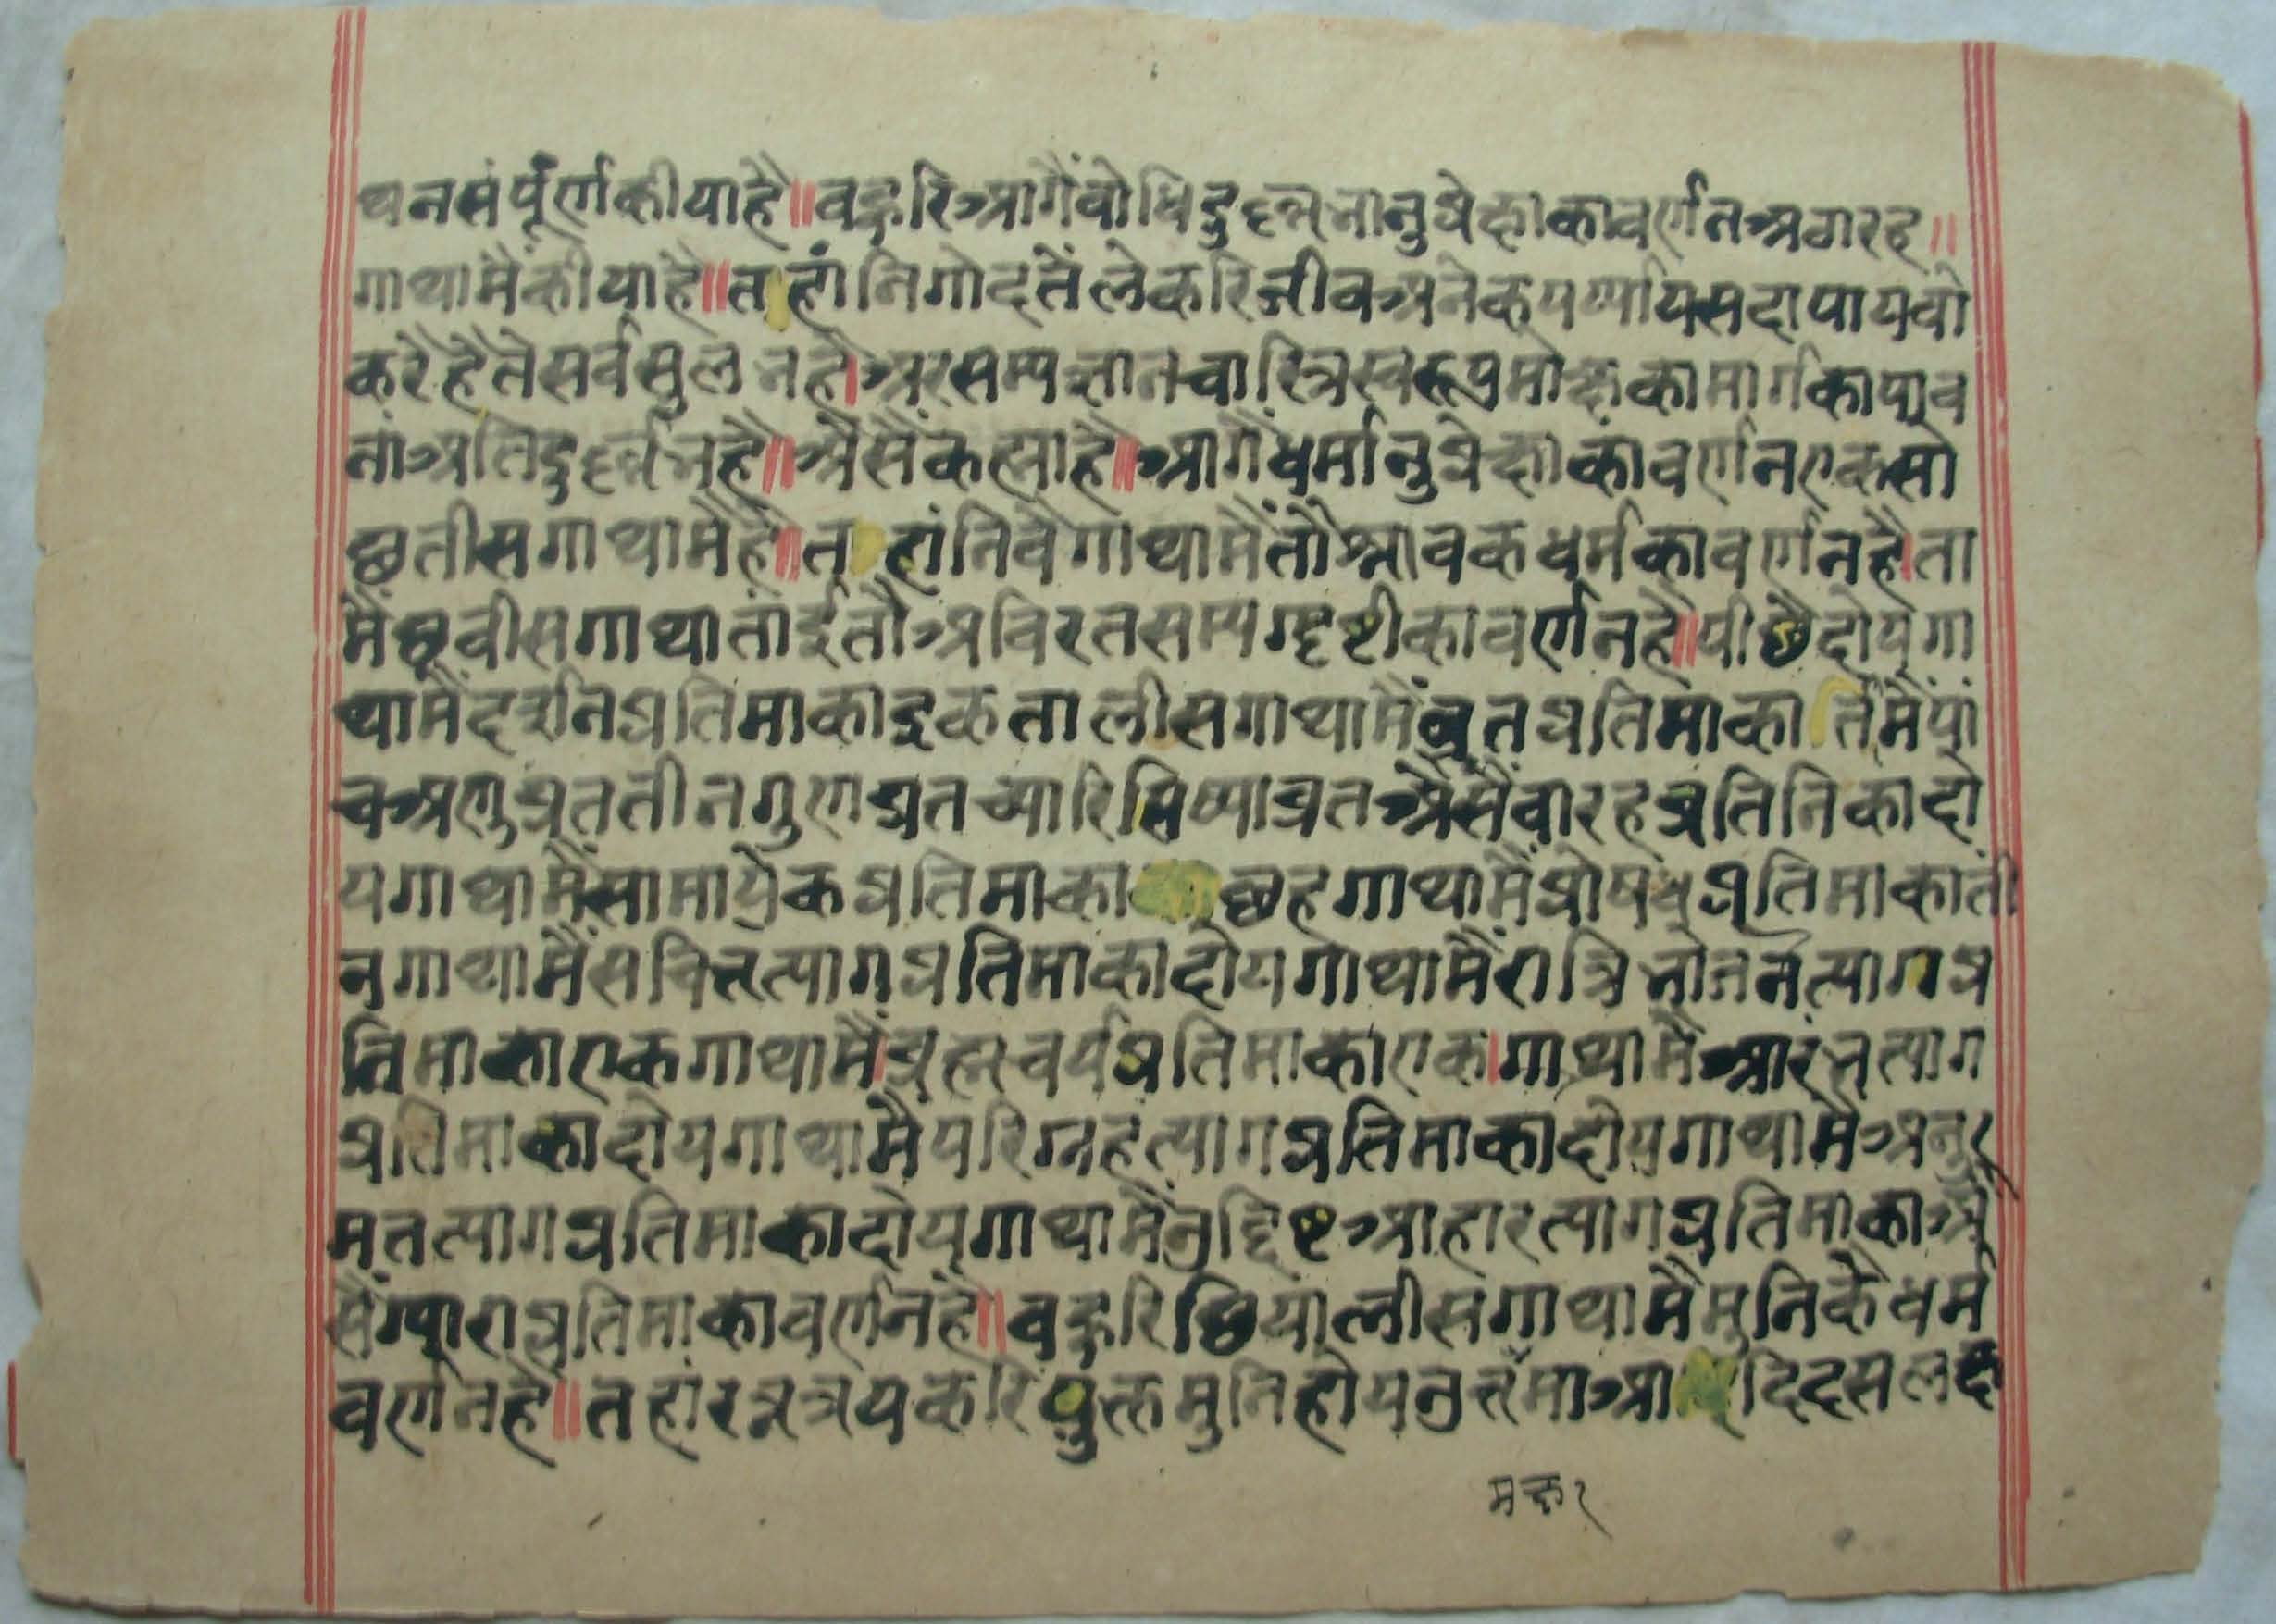 थनसंपूर्णकीयाहै॥वहुरिआगैंवोधिदुर्ल्लभानुप्रेक्षाकावर्णनअठारह॥
गाथामैंकीयाहै॥तहांनिगोदतैंलेकरिजीवअनेकपर्य्यायसदापायवो
करैहैतेसर्वसुलभहै।अरसम्यज्ञानचारित्रस्वरूपमोक्षकामार्गकापाव
नांअतिदुर्ल्लभहै॥अैसैंकह्याहै॥आगैंधर्मानुप्रेक्षाकावर्णनएकसो
छतीसगाथामैंहै॥तहांनिवैगाथामैंतौश्रावकधर्मकावर्णनहै।ता
मैंछवीसगाथातांईतौअविरतसम्यग्दृष्टीकावर्णनहै॥पीछैदोयगा
थामैंदर्शनप्रतिमाकाइकतालीसगाथामैंव्रतप्रतिमाकातैमैंपां
चअणुव्रततीनगुणव्रतच्यारिसिष्याव्रतअैसैंवारहव्रतिनिकादो
यगाथामैंसामायेकप्रतिमाकाछहगाथामैंप्रोषधप्रतिमाकातीं
नगाथामैंसचित्तत्यागप्रतिमाकादोयगाथामैंरात्रिभोजनत्यागप्र
तिमाकाएकगाथामैं।व्रह्मचर्यप्रतिमाकाएक।गाथामैंआरंभत्याग
प्रतिमाकादोयगाथामैंपरिग्रहत्यागप्रतिमाकादोयगाथामैंअनु
मतत्यागप्रतिमाकादोयगाथामैंउद्दिष्टआहारत्यागप्रतिमाकाअै
सैंग्याराप्रतिमाकावर्णनहै॥वहुरिछियालीसगाथामैंमुनिकैधर्म
वर्णनहै॥तहांरत्नत्रयकरियुक्तमुनिहोयउत्तमाआदिदसलक्ष